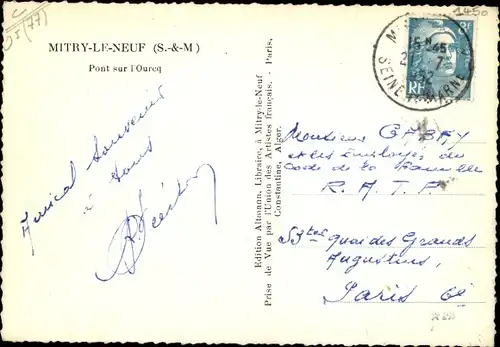 C
DJ (77)
1450
MITRY-LE-NEUF (S.-&-M)
Pont sur l'Ourcq
Amical Souvenir
à tous
Edition Altmann, Libraire, à Mitry-le-Neuf
Prise de Vue par l'Union des Artistes français. - Paris,
Constantine, Alger.
15-H 45
SEINE-ET-MARNE
RF
Monsieur GABAY
et les Employés du
Code de la Famille
R.A.T.P.
53ter quai des Grands
Augustins,
Paris 6e